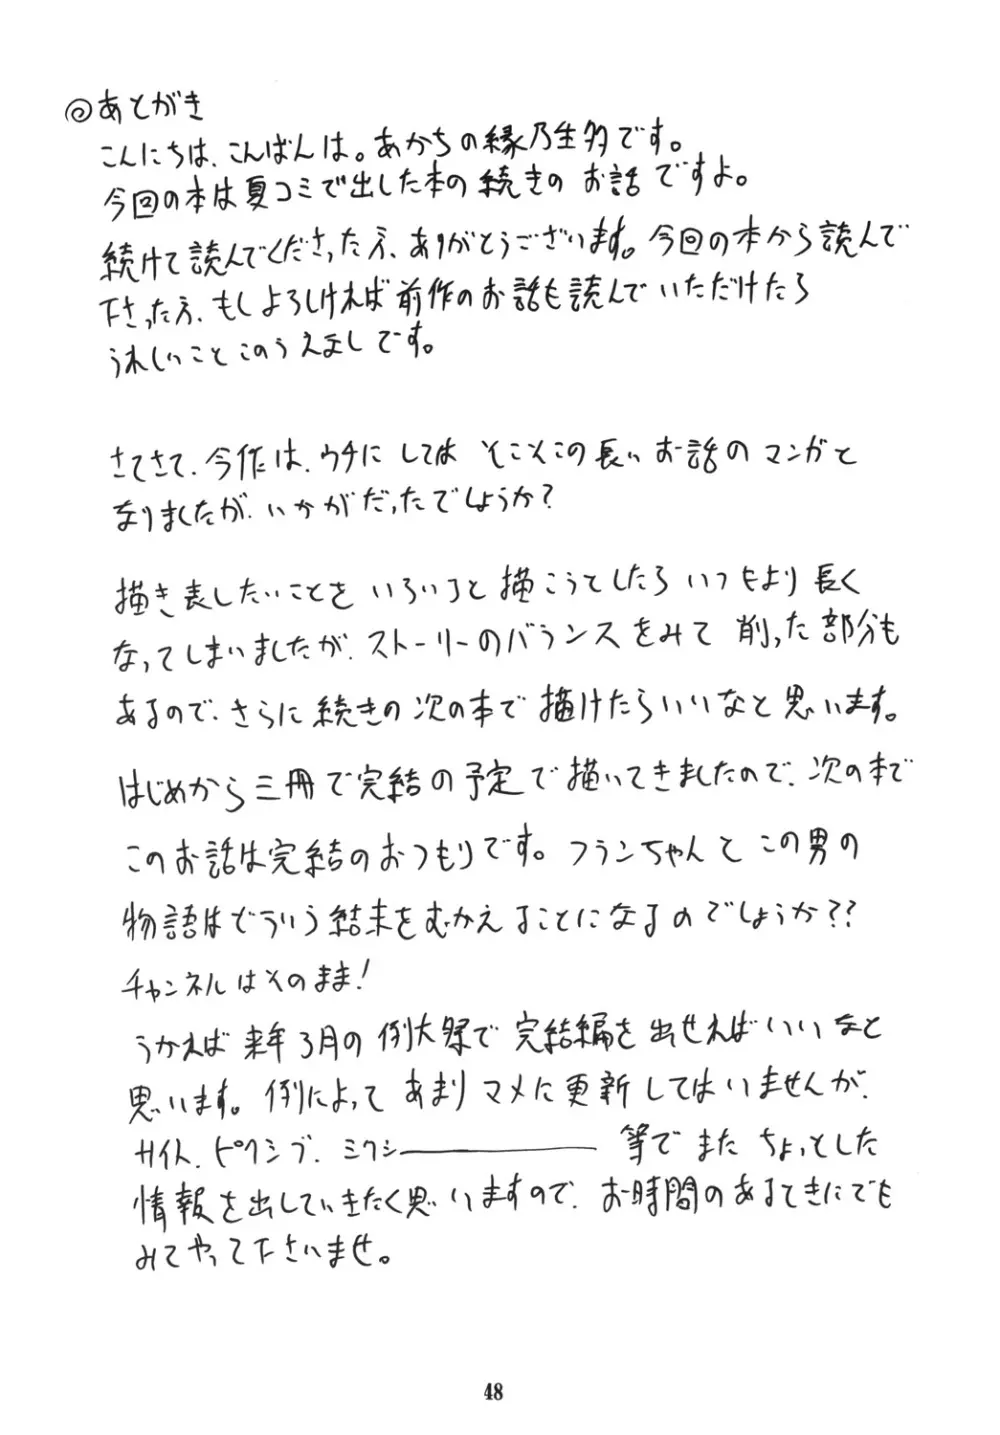 ◎あとがき
こんにちは、こんばんは。あかちの縁乃生多です。
今回の本は夏コミで出した本の続きの お話 ですよ。
続けて読んでくださった方、ありがとうございます。今回の本から読んで
下さった方、もしよろしければ前作のお話も読んでいただけたら
うれしいことこのうえなしです。
さてさて、今作は、ウチにしては そこそこの長いお話のマンガと
なりましたが、いかがだったでしょうか?
描き表したいことを いろいろと描こうとしたら いつもより長く
なってしまいましたが、ストーリーのバランスをみて 削った部分も
あるので、さらに続きの次の本で描けたらいいなと思います。
はじめから三冊で完結の予定で描いてきましたので、次の本で
このお話は完結のおつもりです。フランちゃんとこの男の
物語はどういう結末をむかえることになるのでしょうか??
チャンネルはそのまま!
うかれば来年3月の例大祭で完結編を出せればいいなと
思います。例によってあまりマメに更新してはいませんが、
サイト、ピクシブ、ミクシー――――― 等でまたちょっとした
情報を出していきたく思いますので、お時間のあるときにでも
みてやって下さいませ。
48